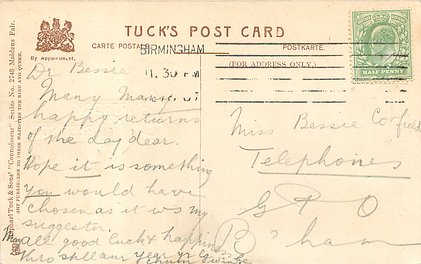 TUCK'S POST CARD
CARTE POSTALE
POSTKARTE.
(FOR ADDRESS ONLY.)
By Appointment.
BIRMINGHAM
11.30 PM
HALF PENNY
Raphael Tuck & Sons' "Connoisseur" Series No. 2748 Maidens Fair.
ART PUBLISHERS TO THEIR MAJESTIES THE KING AND QUEEN.
Dr Bessie
Many Many
happy returns
of the day dear.
Hope it is something
you would have
chosen as it ws my
suggestn.
May all good luck & happiness
thro still anr year yr
chum
Miss Bessie Corfield
Telephones
G P O
B'ham